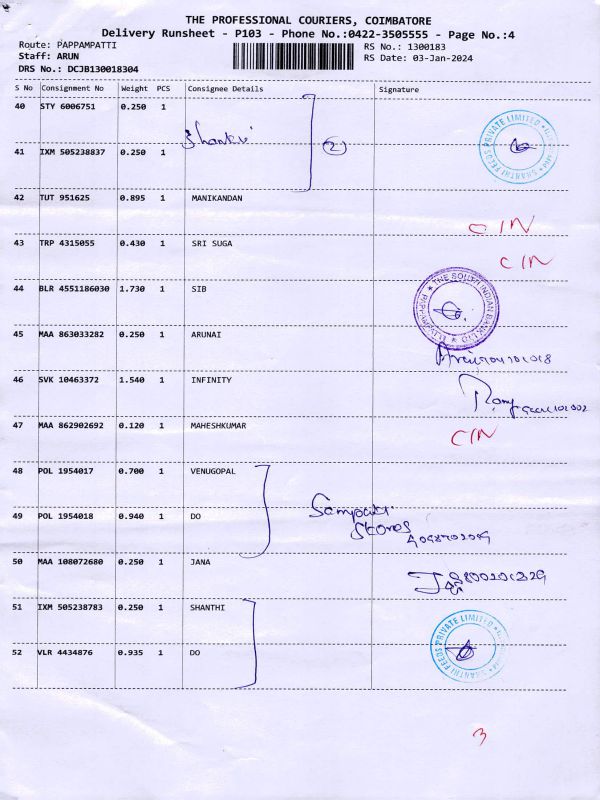 THE PROFESSIONAL COURIERS, COIMBATORE
Delivery Runsheet - P103 - Phone No.:0422-3505555 - Page No.:4
Route: PAPPAMPATTI
Staff: ARUN
DRS No.: DCJB130018304
RS No.: 1300183
RS Date: 03-Jan-2024
S No Consignment No Weight PCS Consignee Details Signature
40 STY 6006751 0.250 1
PRIVATE LIMITED
SHANTHI FEEDS
Shanthi
2
41 IXM 505238837 0.250 1
42 TUT 951625 0.895 1 MANIKANDAN
CIN
43 TRP 4315055 0.430 1 SRI SUGA
CIN
44 BLR 4551186030 1.730 1 SIB
THE SOUTH INDIAN BANK LTD
45 MAA 863033282 0.250 1 ARUNAI
46 SVK 10463372 1.540 1 INFINITY
47 MAA 862902692 0.120 1 MAHESHKUMAR
CIN
48 POL 1954017 0.700 1 VENUGOPAL
49 POL 1954018 0.940 1 DO
Stores
50 MAA 108072680 0.250 1 JANA
51 IXM 505238783 0.250 1 SHANTHI
PRIVATE LIMITED
SHANTHI FEEDS
52 VLR 4434876 0.935 1 DO
3